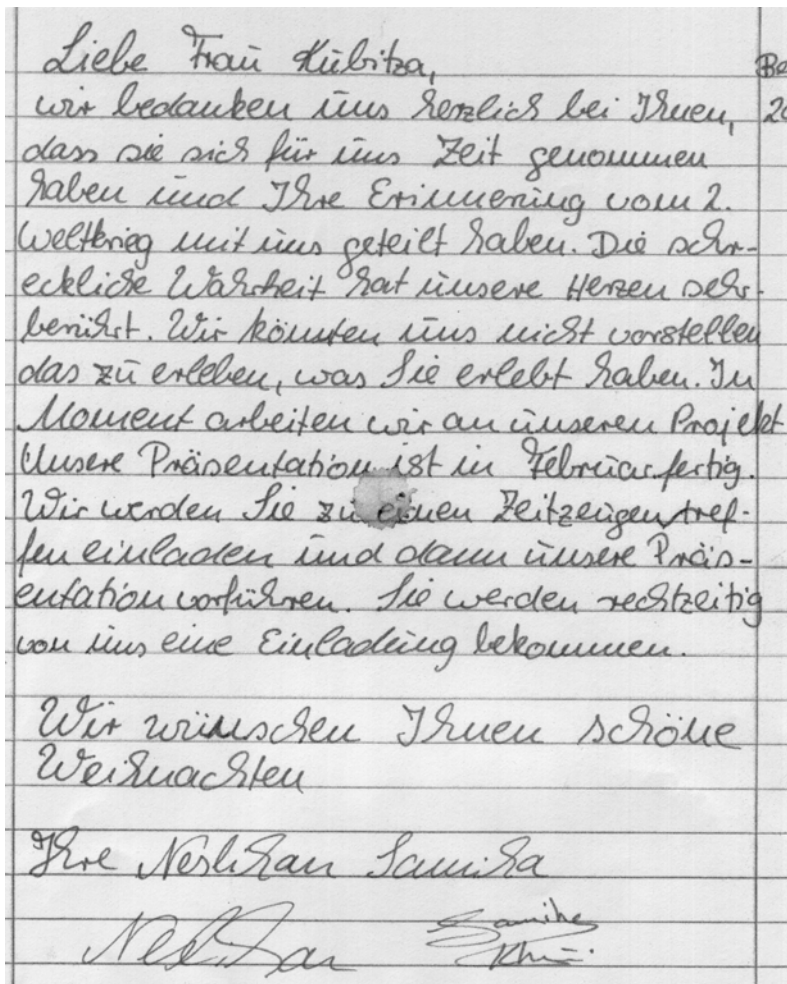 Liebe Frau Kubitza,
wir bedanken uns herzlich bei Ihnen,
dass sie sich für uns Zeit genommen
haben und Ihre Erinnerung vom 2.
Weltkrieg mit uns geteilt haben. Die schr-
eckliche Wahrheit hat unsere Herzen sehr
berührt. Wir könnten uns nicht vorstellen
das zu erleben, was Sie erlebt haben. In
Moment arbeiten wir an unseren Projekt
Unsere Präsentation ist in Februar fertig.
Wir werden Sie zu einen Zeitzeugentref-
fen einladen und dann unsere Präs-
entation vorführen. Sie werden rechtzeitig
von uns eine Einladung bekommen.
Wir wünschen Ihnen schöne
Weihnachten
Ihre Neslihan Samiha
Neslihan Samiha